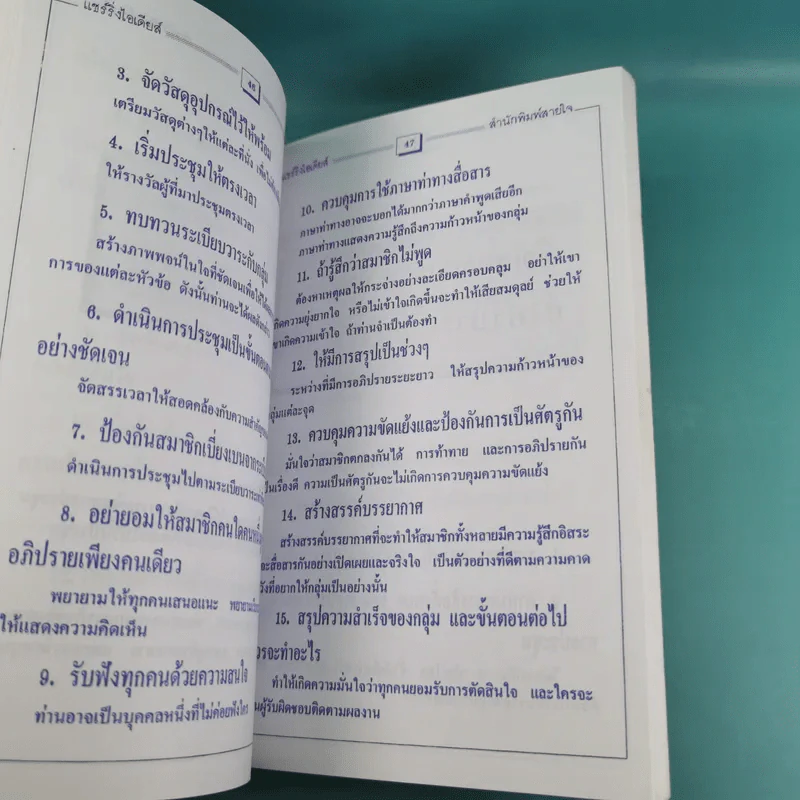 แชร์ริ่งไอเดียส์
46
3. จัดวัสดุอุปกรณ์ไว้ให้พร้อม
เตรียมวัสดุต่างๆให้แต่ละที่นั่ง เพื่อ
4. เริ่มประชุมให้ตรงเวลา
ให้รางวัลผู้ที่มาประชุมตรงเวลา
5. ทบทวนระเบียบวาระกับกลุ่ม
สร้างภาพพจน์ในใจที่ชัดเจนเพื่อให้ได้
การของแต่ละหัวข้อ ดังนั้นท่านจะได้
6. ดำเนินการประชุมเป็นขั้นตอน
อย่างชัดเจน
จัดสรรเวลาให้สอดคล้องกับความสำคัญ
7. ป้องกันสมาชิกเบี่ยงเบนจาก
ดำเนินการประชุมไปตามระเบียบวาระ
8. อย่ายอมให้สมาชิกคนใดคนหนึ่ง
อภิปรายเพียงคนเดียว
พยายามให้ทุกคนเสนอแนะ พยายาม
ให้แสดงความคิดเห็น
9. รับฟังทุกคนด้วยความสนใจ
ท่านอาจเป็นบุคคลหนึ่งที่ไม่ค่อยฟังใคร
แชร์ริ่งไอเดียส์
47
สำนักพิมพ์สายใจ
10. ควบคุมการใช้ภาษาท่าทางสื่อสาร
ภาษาท่าทางอาจจะบอกได้มากกว่าภาษาคำพูดเสียอีก
ภาษาท่าทางแสดงความรู้สึกถึงความก้าวหน้าของกลุ่ม
11. ถ้ารู้สึกว่าสมาชิกไม่พูด
ต้องหาเหตุผลให้กระจ่างอย่างละเอียดครอบคลุม อย่าให้เขา
เกิดความยุ่งยากใจ หรือไม่เข้าใจเกิดขึ้นจะทำให้เสียสมดุลย์ ช่วยให้
เขาเกิดความเข้าใจ ถ้าท่านจำเป็นต้องทำ
12. ให้มีการสรุปเป็นช่วงๆ
ระหว่างที่มีการอภิปรายระยะยาว ให้สรุปความก้าวหน้าของ
กลุ่มแต่ละจุด
13. ควบคุมความขัดแย้งและป้องกันการเป็นศัตรูกัน
มั่นใจว่าสมาชิกตกลงกันได้ การท้าทาย และการอภิปรายกัน
เป็นเรื่องดี ความเป็นศัตรูกันจะไม่เกิดการควบคุมความขัดแย้ง
14. สร้างสรรค์บรรยากาศ
สร้างสรรค์บรรยากาศที่จะทำให้สมาชิกทั้งหลายมีความรู้สึกอิสระ
จะสื่อสารกันอย่างเปิดเผยและจริงใจ เป็นตัวอย่างที่ดีตามความคาด
หวังที่อยากให้กลุ่มเป็นอย่างนั้น
15. สรุปความสำเร็จของกลุ่ม และขั้นตอนต่อไป
ควรจะทำอะไร
ทำให้เกิดความมั่นใจว่าทุกคนยอมรับการตัดสินใจ และใครจะ
เป็นผู้รับผิดชอบติดตามผลงาน